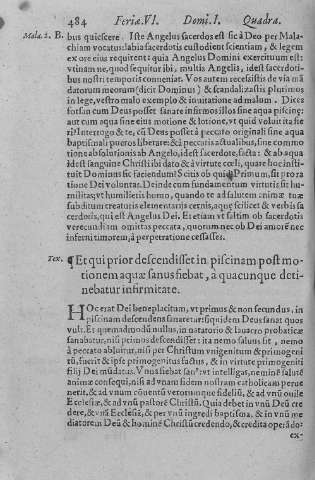 484 Feriæ.VI. Domi.I. Quadra.
Mala. 2. B.
bus quiescere. Iste Angelus sacerdos est sic à Deo per Mala-
chiam vocatus: labia sacerdotis custodient scientiam, & legem
ex ore eius requirent: quia Angelus Domini exercituum est:
vtinam ne, quod sequitur ibi, multis Angelis, idest sacerdoti-
bus nostri temporis conueniat. Vos autem recessistis de via mã
datorum meorum (dicit Dominus) & scandalizastis plurimos
in lege, vestro malo exemplo & inuitatione ad malum. Dices
forsan cum Deus posset sanare infirmos illos sine aqua piscinę:
aut cum aqua sine eius motione & lotione, vt quid voluit ita fie
ri? Interrogo & te, cũ Deus posset à peccato originali sine aqua
baptismali pueros liberare: & à peccatis actualibus, sine commo
tione absolutionis ab Angelo, idest sacerdote, facta: & ab aqua
idest sanguine Christi ibi dato & à virtute cœli, quare hoc insti-
tuit Dominus sic faciendum? Scitis ob quid? Primum, sit pro ra
tione Dei voluntas. Deinde cum fundamentum virtutis sit hu-
militas; vt humilieris homo, quando te ad salutem animæ tuæ
subditum creaturis elementaris cernis, aquę scilicet & verbis sa
cerdotis, qui est Angelus Dei. Et etiam vt saltim ob sacerdotis
verecundiam omittas peccata, quorum nec ob Dei amorē nec
inferni timorem, à perpetratione cessasses.
Tex. ¶ Et qui prior descendisset in piscinam post mo-
tionem aquæ sanus fiebat, a quacunque deti-
nebatur infirmitate.
HOc erat Dei beneplacitum, vt primus & non secundus, in
piscinam descendens sanaretur: siquidem Deus sanat quos
vult. Et quemadmodũ nullus, in natatorio & lauacro probaticæ
sanabatur, nisi primus descendisset: ita nemo saluus fit, nemo
à peccato abluitur, nisi per Christum vnigenitum & primogeni
tũ, fuerit & ipse primogenitus factus, & in virtute primogeniti
filij Dei mũdatus. Vnus fiebat sanus: vt intelligas, neminē salutē
animæ consequi, nisi ad vnam fidem nostram catholicam perue
nerit, & ad vnum cōuentũ verorumque fideliũ, & ad vnũ ouile
Ecclesiæ, & ad vnũ pastorē Christũ. Quia debet in vnũ Deũ cre
dere, & vnã Ecclesiã, & per vnũ ingredi baptisma, & in vnũ me
diatorem Deũ & hominē Christũ credendo, & credita operãdo:
ex-